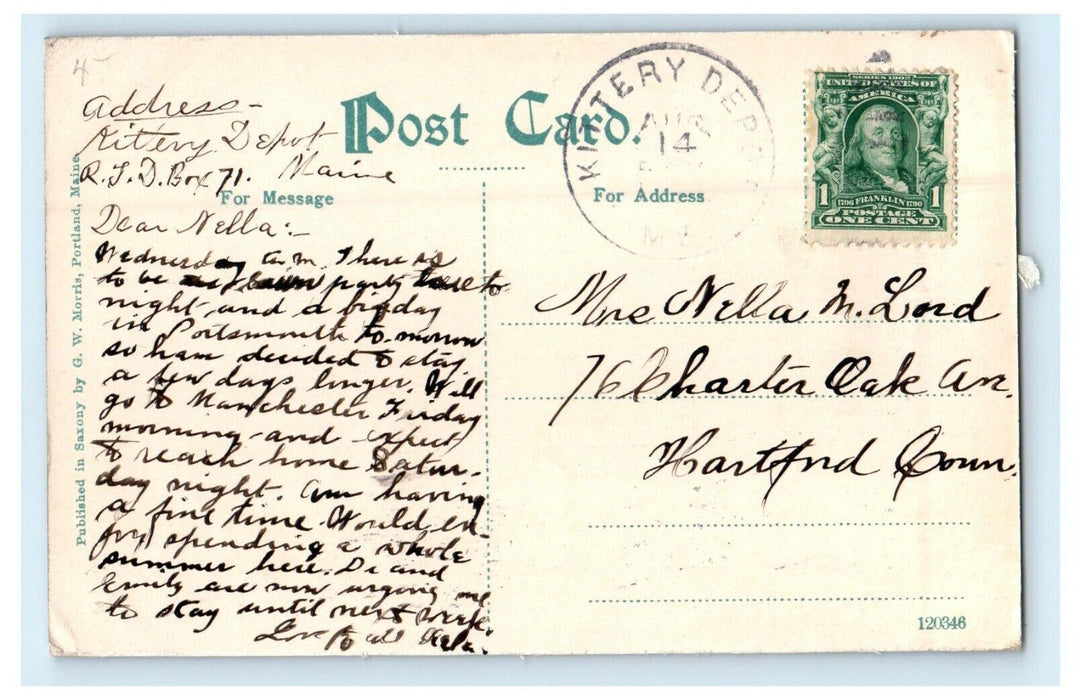 4
Address-
Kittery Depot
R.F.D. Box 71. Maine
Post Card.
For Message
For Address
KITTERY DEPOT
AUG
14
SERIES 1902
UNITED STATES OF
AMERICA
1 1
1706 FRANKLIN 1790
POSTAGE
ONE CENT
Dear Nella:-
Wednesday a.m. There is
to be a lawn party here to
night and a big day
in Portsmouth to-morrow
so have decided to stay
a few days longer. Will
go to Manchester Friday
morning and expect
to reach home Satur-
day night. Am having
a fine time. Would en-
joy spending a whole
summer here. Di and
Emily are now urging me
to stay until next week.
Love to all
Mrs Nella M. Lord
76 Charter Oak Av.
Hartford Conn.
Published in Saxony by G. W. Morris, Portland, Maine
120346